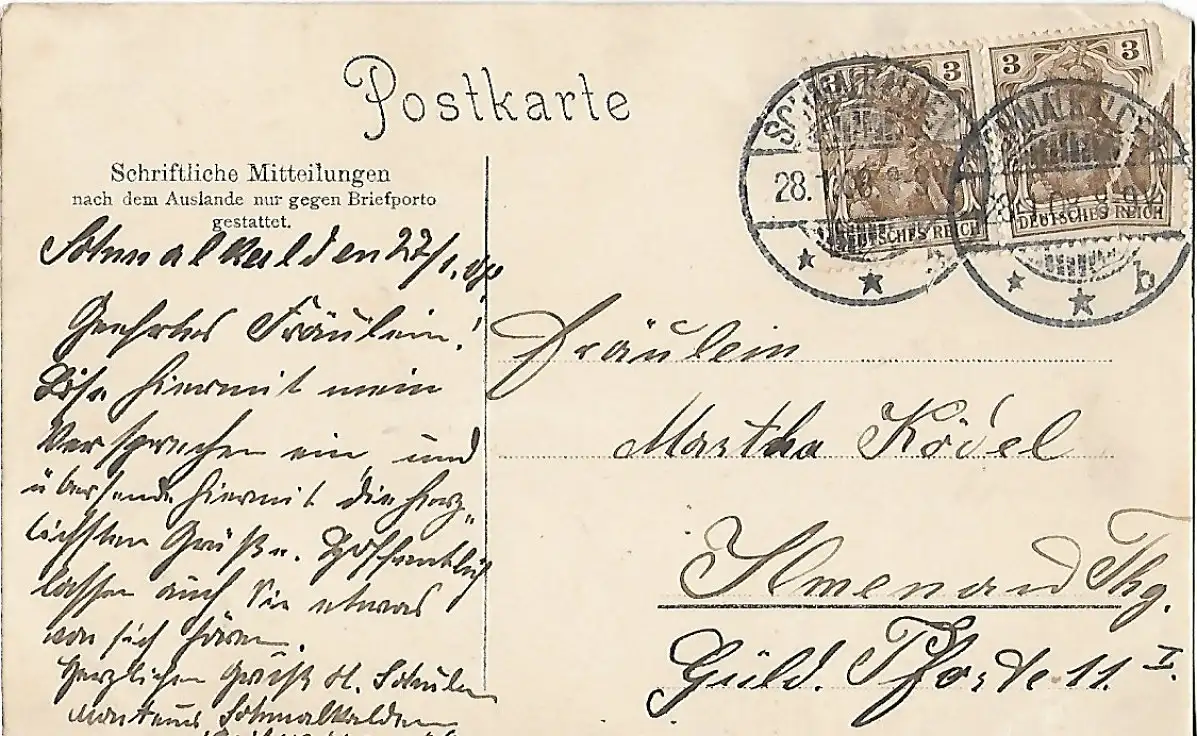 Postkarte
Schriftliche Mitteilungen
nach dem Auslande nur gegen Briefporto
gestattet.
3 3
3 3
DEUTSCHES REICH
DEUTSCHES REICH
28.1.08
b
Schmalkalden 27/1.
Geehrtes Fräulein!
Löse hiermit mein
Versprechen ein und
übersende hiermit die herz-
lichsten Grüße. Hoffentlich
lassen auch Sie etwas
von sich hören.
Herzlichen Gruß H.
Schmalkalden
Fräulein
Martha Ködel
Ilmenau Thg.
Güld. Pforte 11 I.